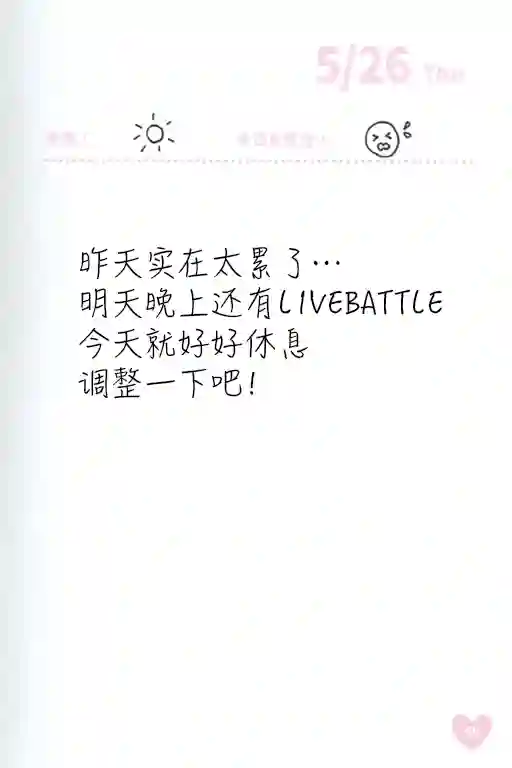 5/26 Thu
昨天实在太累了…
明天晚上还有LIVEBATTLE
今天就好好休息
调整一下吧!